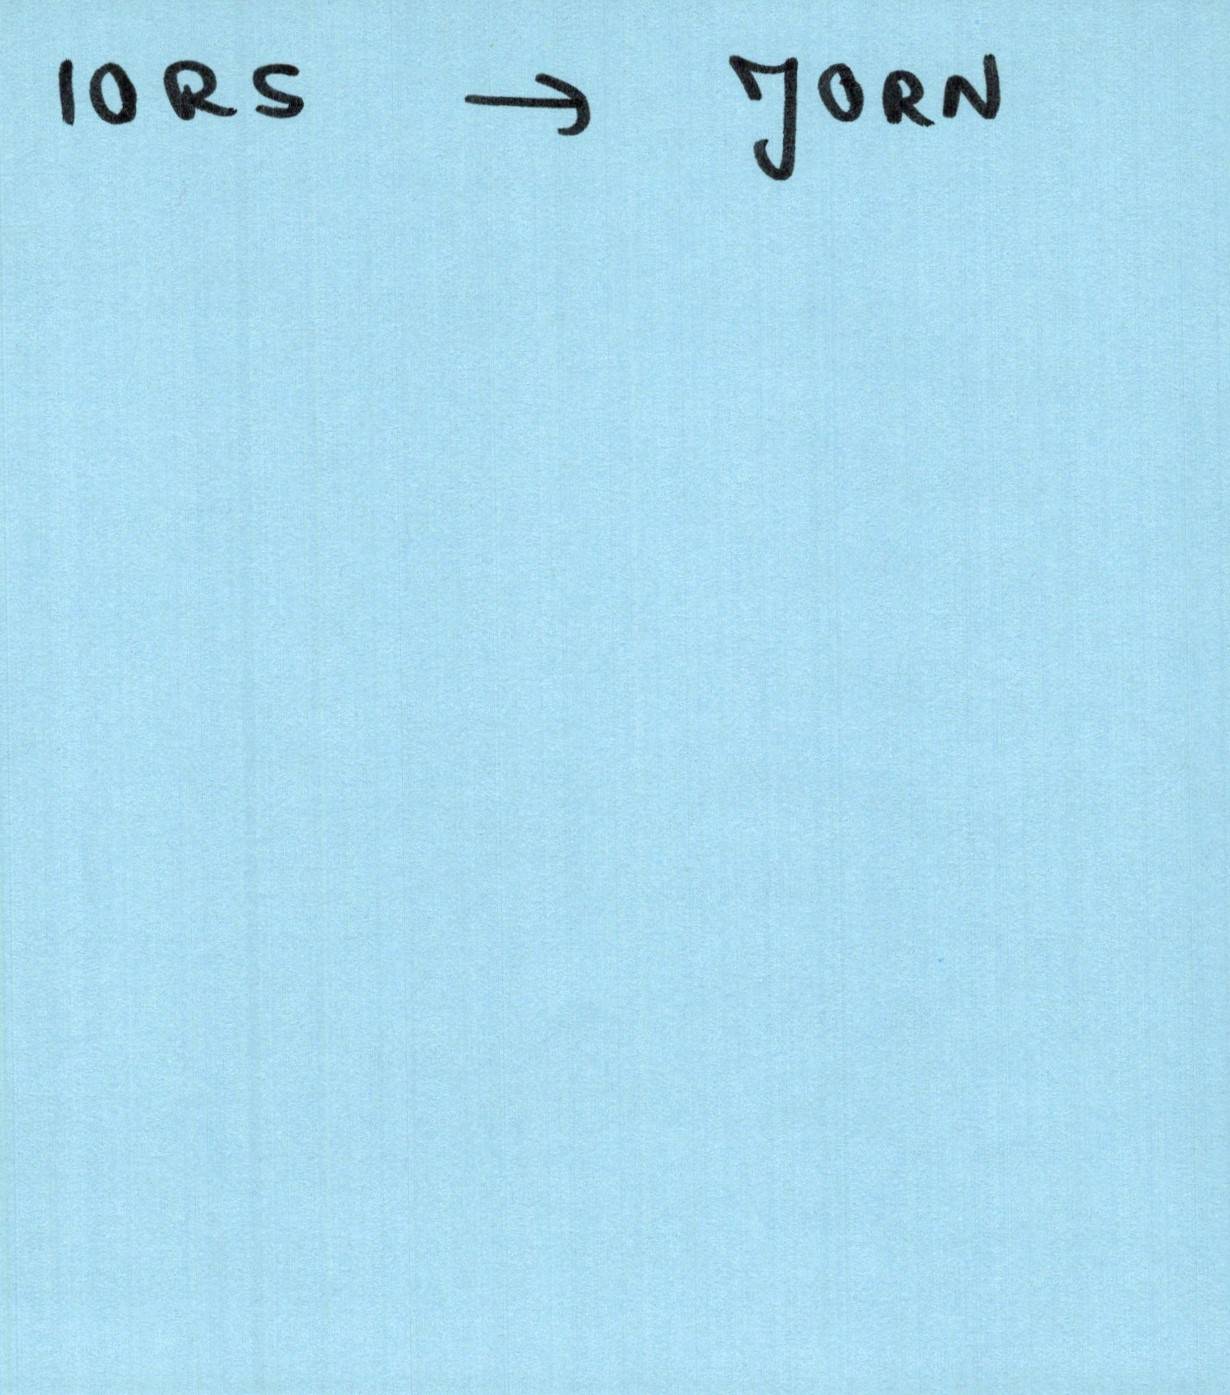 IORS → JORN